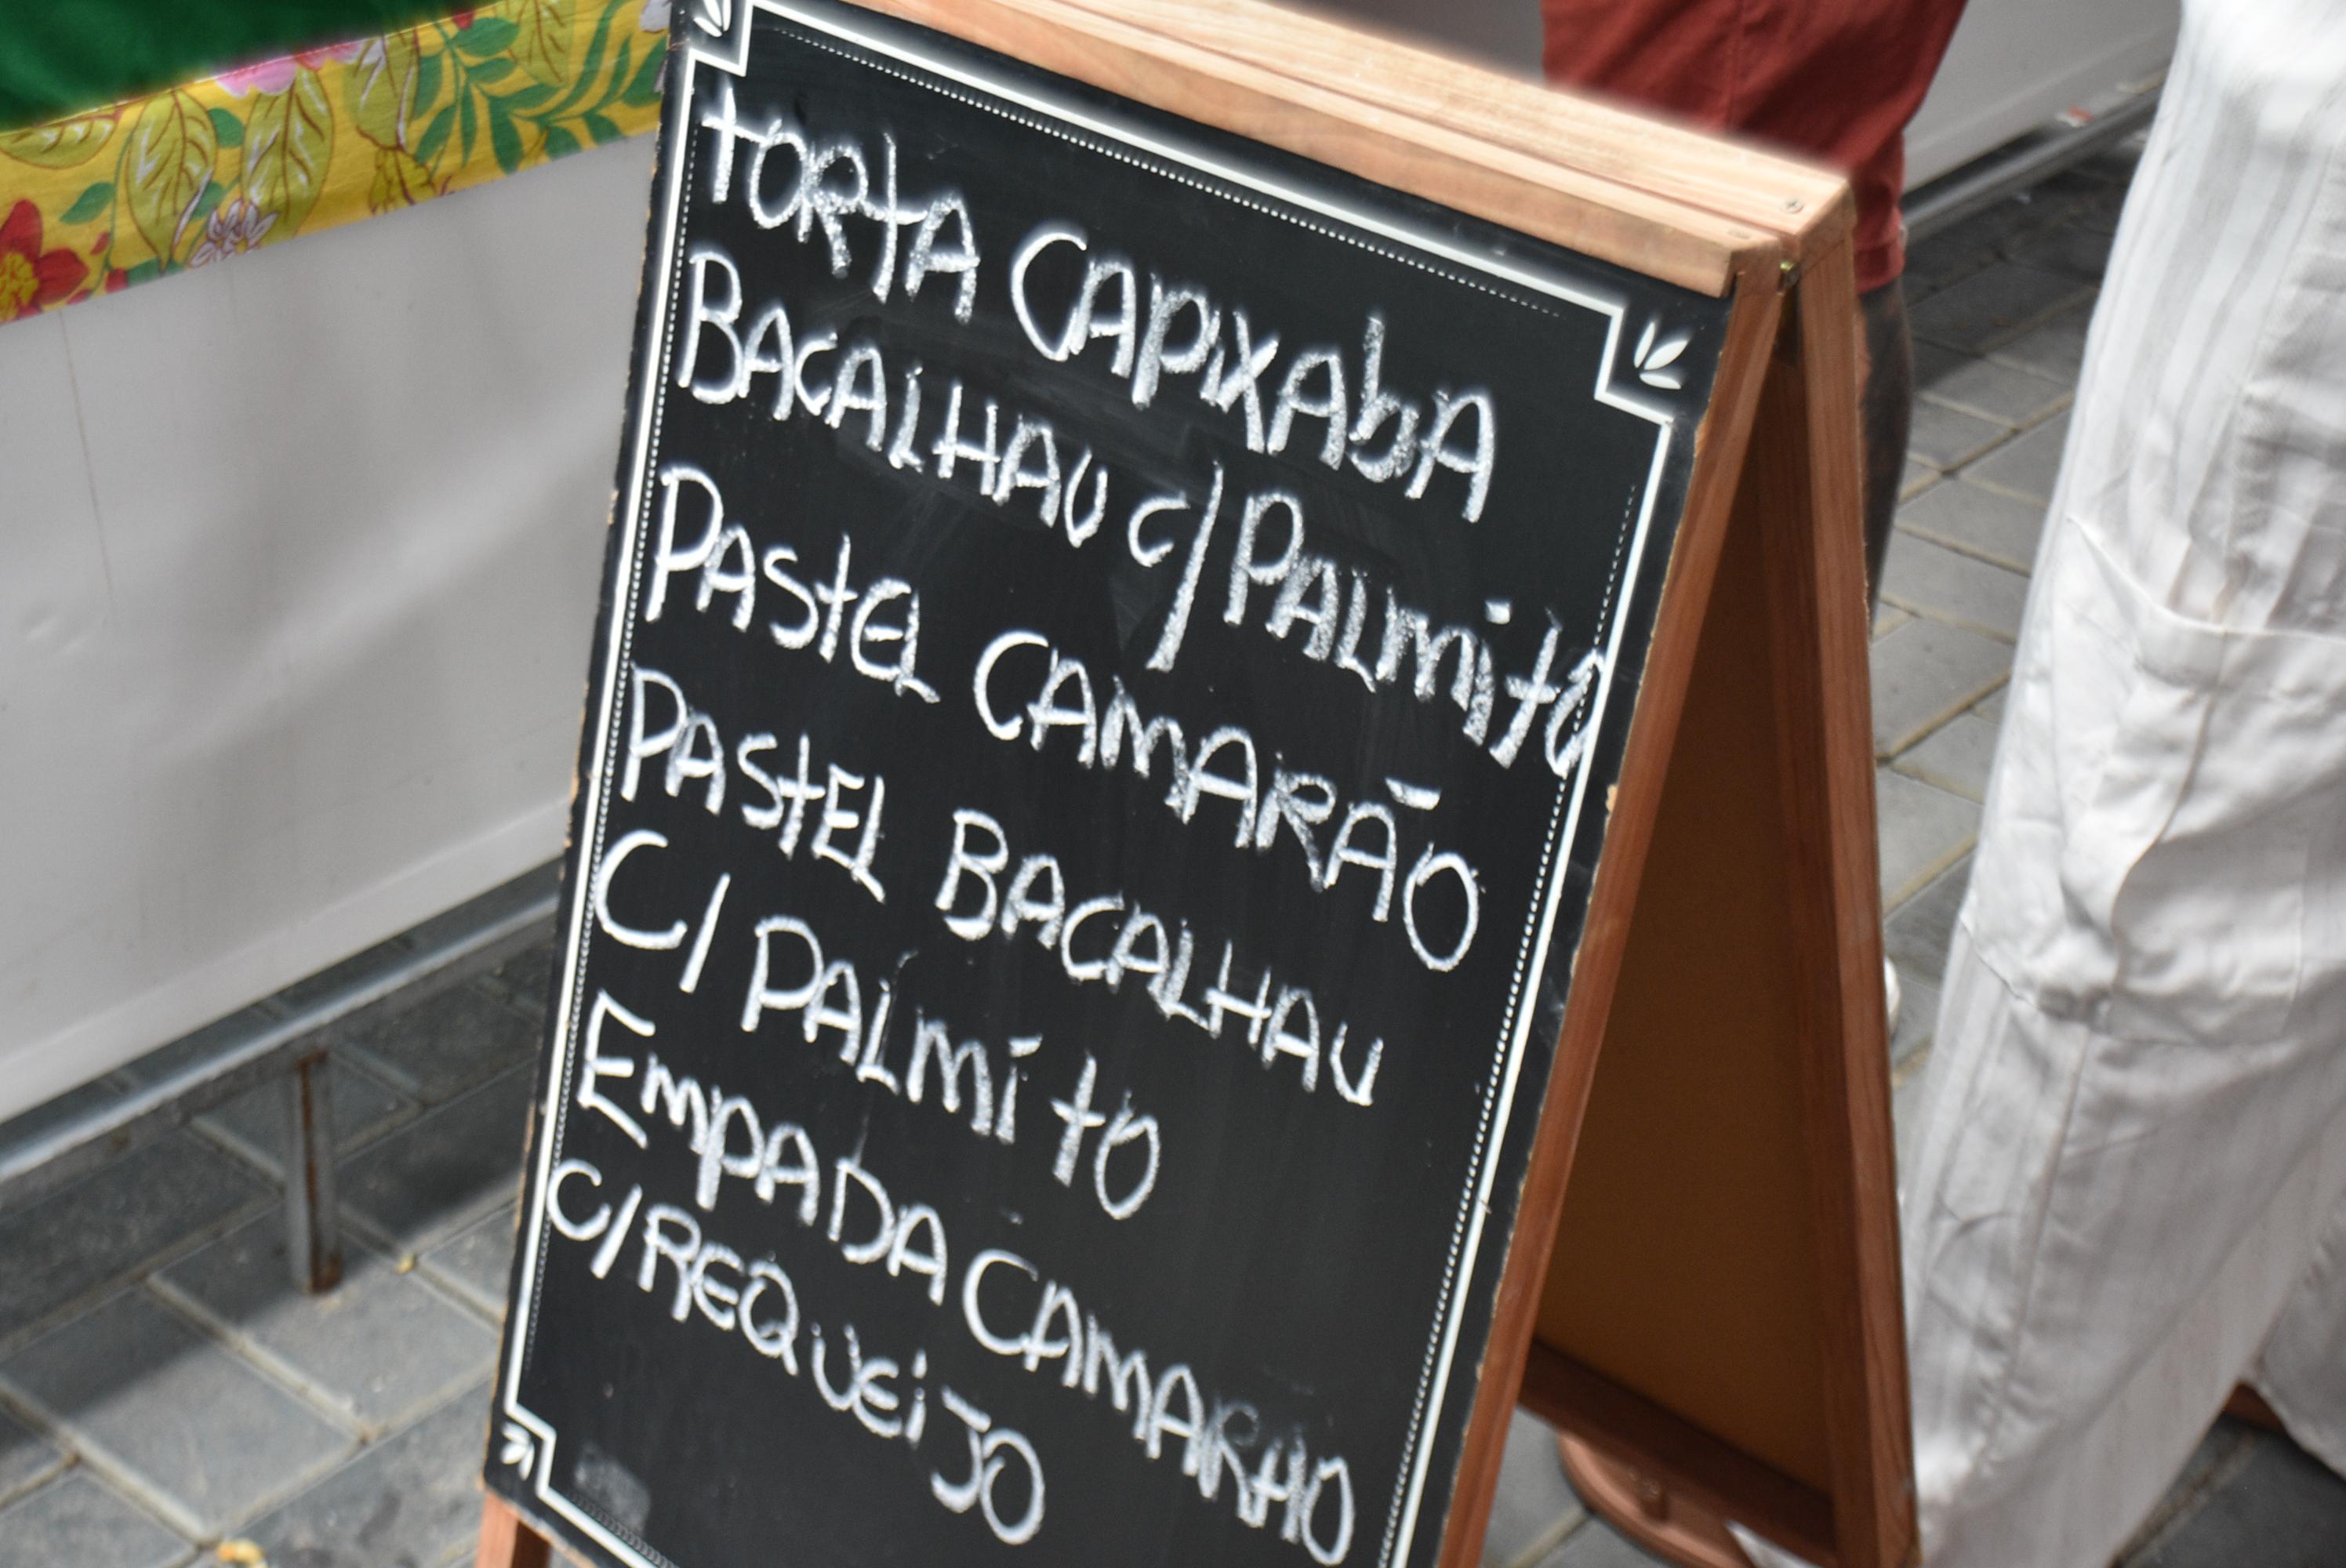 tORtA CAPixAbA
BACALHAU c/PALmito
PAStEL CAMARÃO
PAStEL BACALHAU
C/ PALmito
EmpADA CAMARÃO
C/REQUEiJO